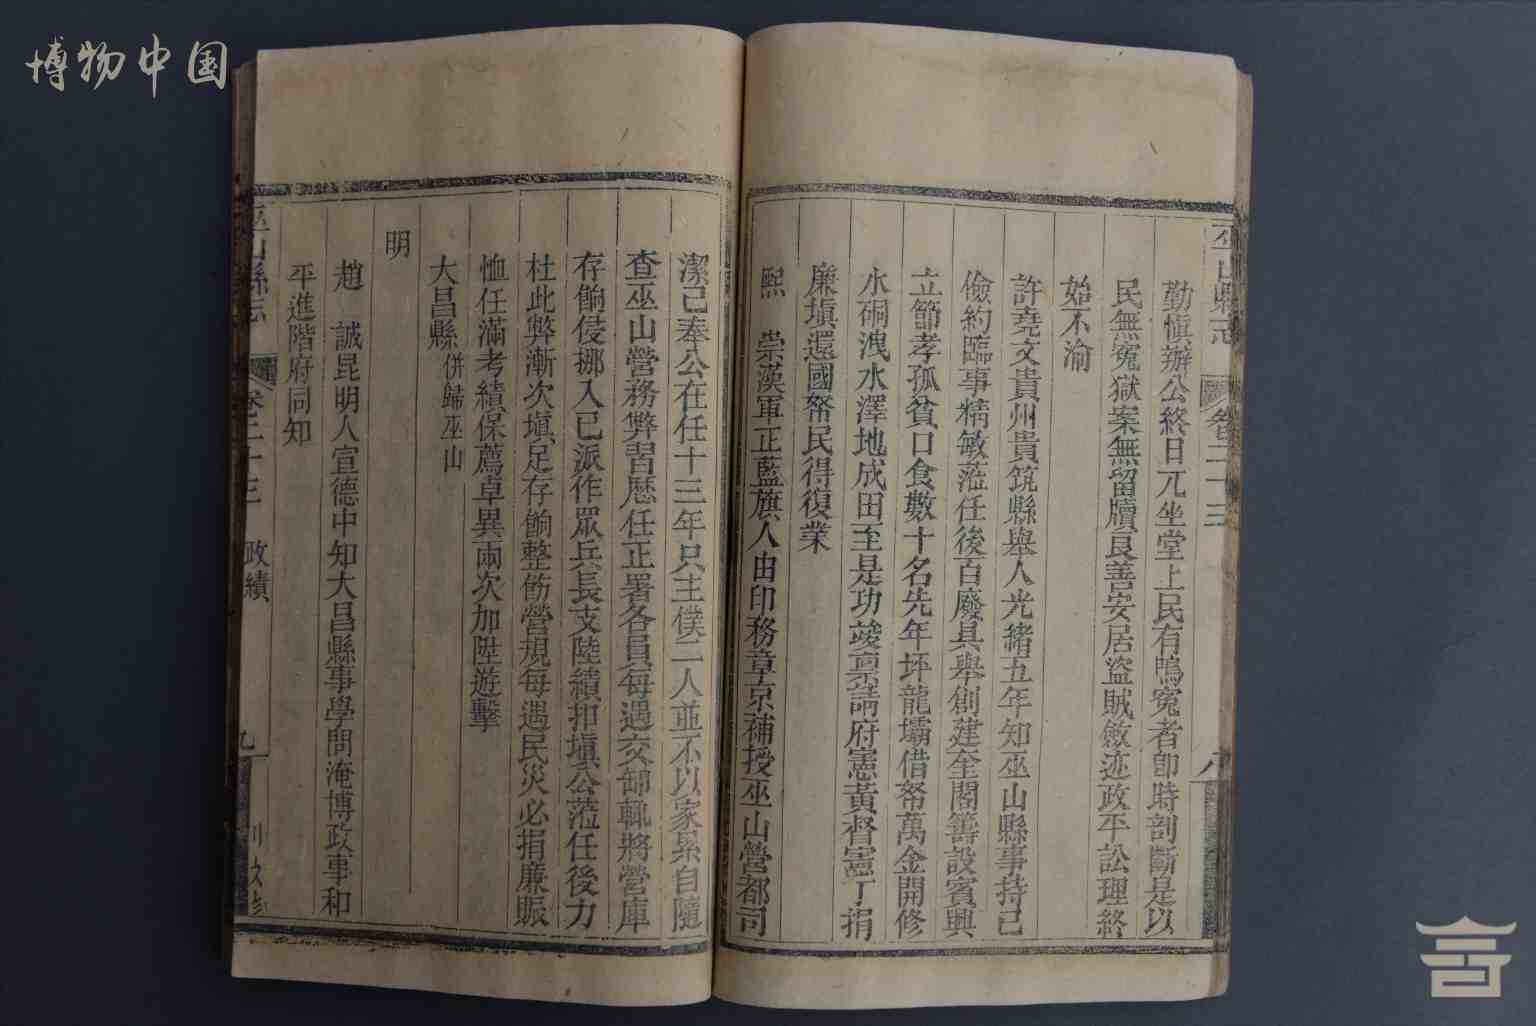 博物中国
巫山縣志 卷二十三 八
勤慎辦公終日兀坐堂上民有鳴冤者卽時剖斷是以
民無冤獄案無留牘良善安居盜賊斂迹政平訟理終
始不渝
許堯文貴州貴筑縣舉人光緒五年知巫山縣事持己
儉約臨事精敏蒞任後百廢具舉創建奎閣籌設賓興
立節孝孤貧口食數十名先年坪龍壩借帑萬金開修
水硐洩水澤地成田至是功竣稟請府憲黃督憲丁捐
廉塡還國帑民得復業
熙 崇漢軍正藍旗人由印務章京補授巫山營都司
潔己奉公在任十三年只主僕二人並不以家累自隨
查巫山營務弊習歷任正署各員每遇交卸輒將營庫
存餉侵挪入己派作眾兵長支陸續扣塡公蒞任後力
杜此弊漸次塡足存餉整飭營規每遇民災必捐廉賑
恤任滿考績保薦卓異兩次加陞遊擊
大昌縣 併歸巫山
明
趙 誠昆明人宣德中知大昌縣事學問淹博政事和
平進階府同知
巫山縣志 卷二十三 政績 九